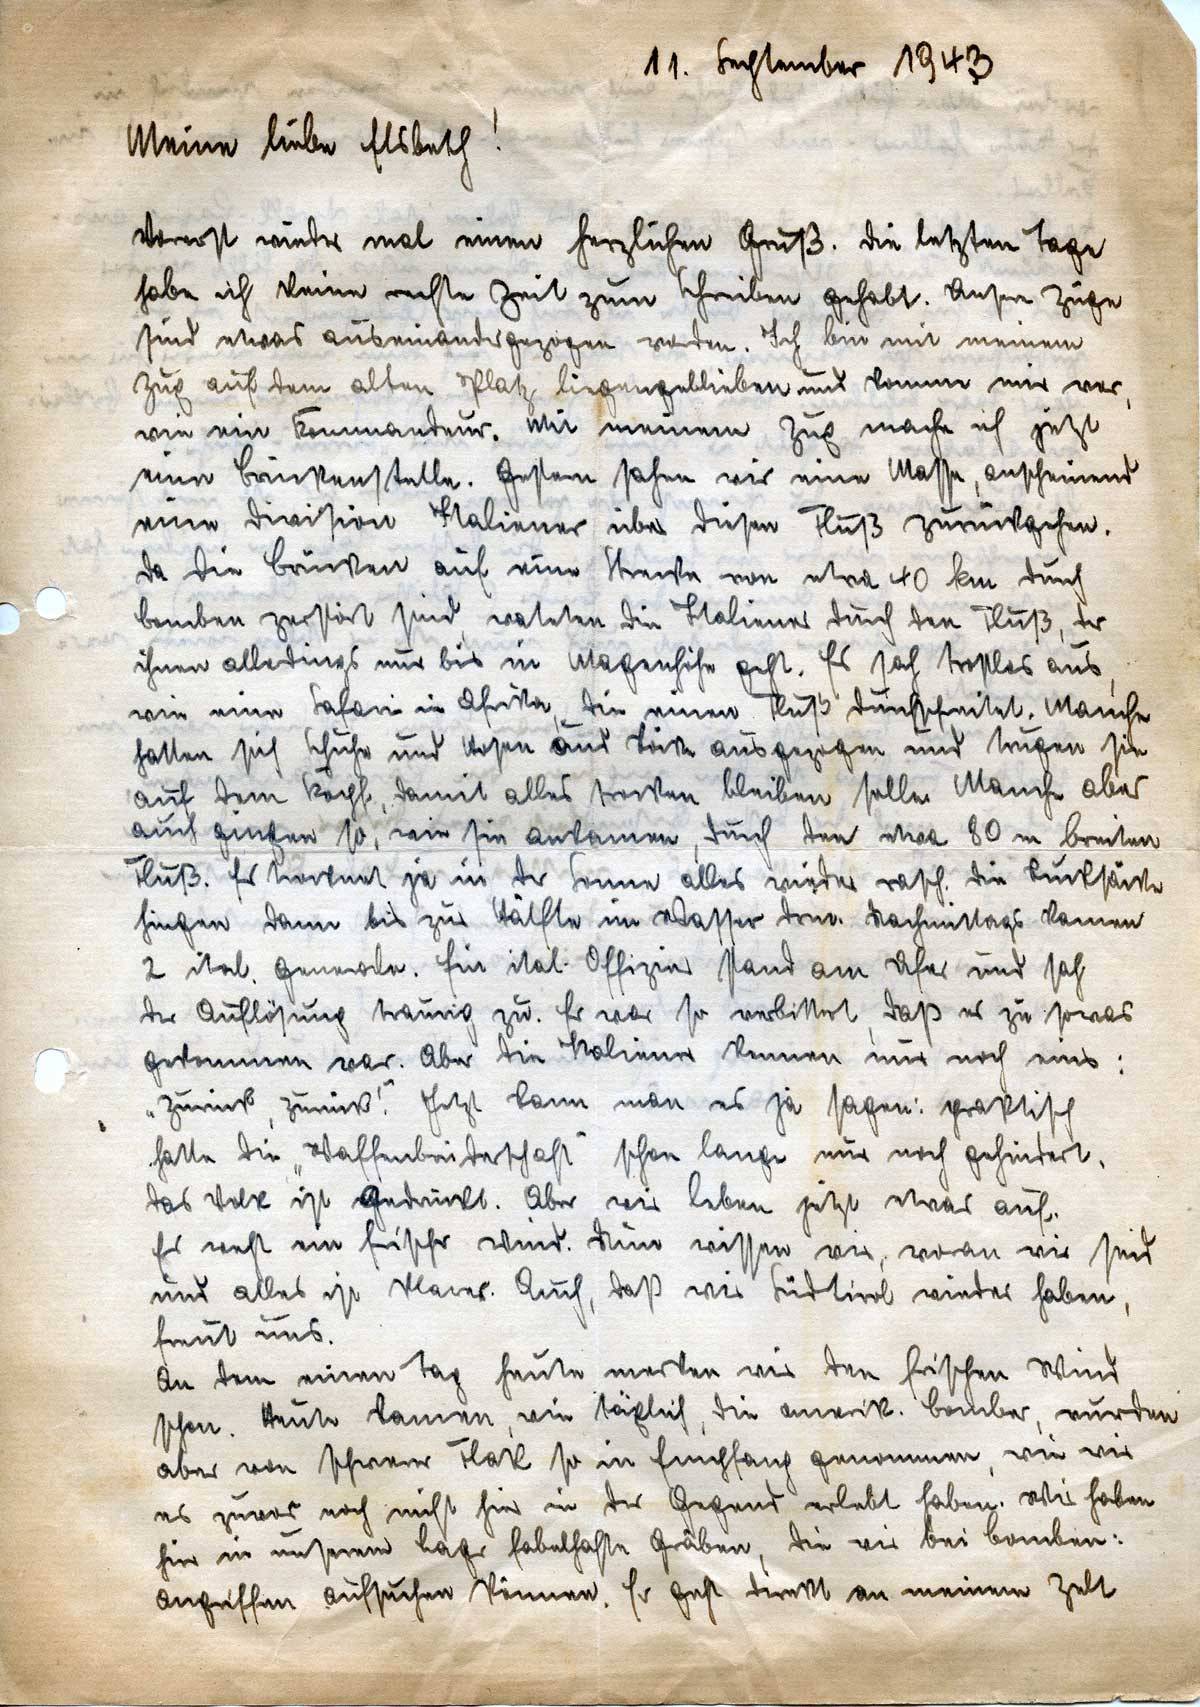 11. September 1943
Meine liebe Elsbeth!
Vorerst wieder mal einen herzlichen Gruß. Die letzten Tage
habe ich keine rechte Zeit zum Schreiben gehabt. Unsere Züge
sind etwas auseinandergezogen worden. Ich bin mit meinem
Zug auf dem alten Platz liegengeblieben und komme mir vor,
wie ein Kommandeur. Mit meinem Zug mache ich jetzt
eine Brückenstelle. Gestern sahen wir eine Masse, anscheinend
eine Division Italiener über diesen Fluß zurückgehen.
Da die Brücken auf eine Strecke von etwa 40 km durch
Bomben zerstört sind, wateten die Italiener durch den Fluß, der
ihnen allerdings nur bis in Magenhöhe geht. Es sah trostlos aus,
wie eine Safari in Afrika, die einen Fluß durchschreitet. Manche
hatten sich Schuhe und Hosen und Röcke ausgezogen und trugen sie
auf dem Kopf, damit alles trocken bleiben solle. Manche aber
auch gingen so, wie sie ankamen, durch den etwa 80 m breiten
Fluß. Es trocknet ja in der Sonne alles wieder rasch. Die Rucksäcke
hingen dann bis zur Hälfte im Wasser drin. Nachmittags kamen
2 ital. Generale. Ein ital. Offizier stand am Ufer und sah
der Auflösung traurig zu. Er war so verbittert, daß es zu sowas
gekommen war. Aber die Italiener kennen nur noch eins:
„Zurück, zurück!" Jetzt kann man es ja sagen: praktisch
hatte die „Waffenbrüderschaft" schon lange nur noch gehindert.
Das Volk ist gedrückt. Aber wir leben jetzt etwas auf.
Es weht ein frischer Wind. Nun wissen wir, woran wir sind
und alles ist klarer. Auch, daß wir Südtirol wieder haben,
freut uns.
An dem einen Tag heute merken wir den frischen Wind
schon. Heute kamen, wie täglich, die amerik. Bomber, wurden
aber von schwerer Flak so in Empfang genommen, wie wir
es zuvor noch nicht hier in der Gegend erlebt haben. Wir haben
hier in unserem Lager fabelhafte Gräben, die wir bei Bomben:
angriffen aufsuchen können. Er geht direkt an meinem Zelt